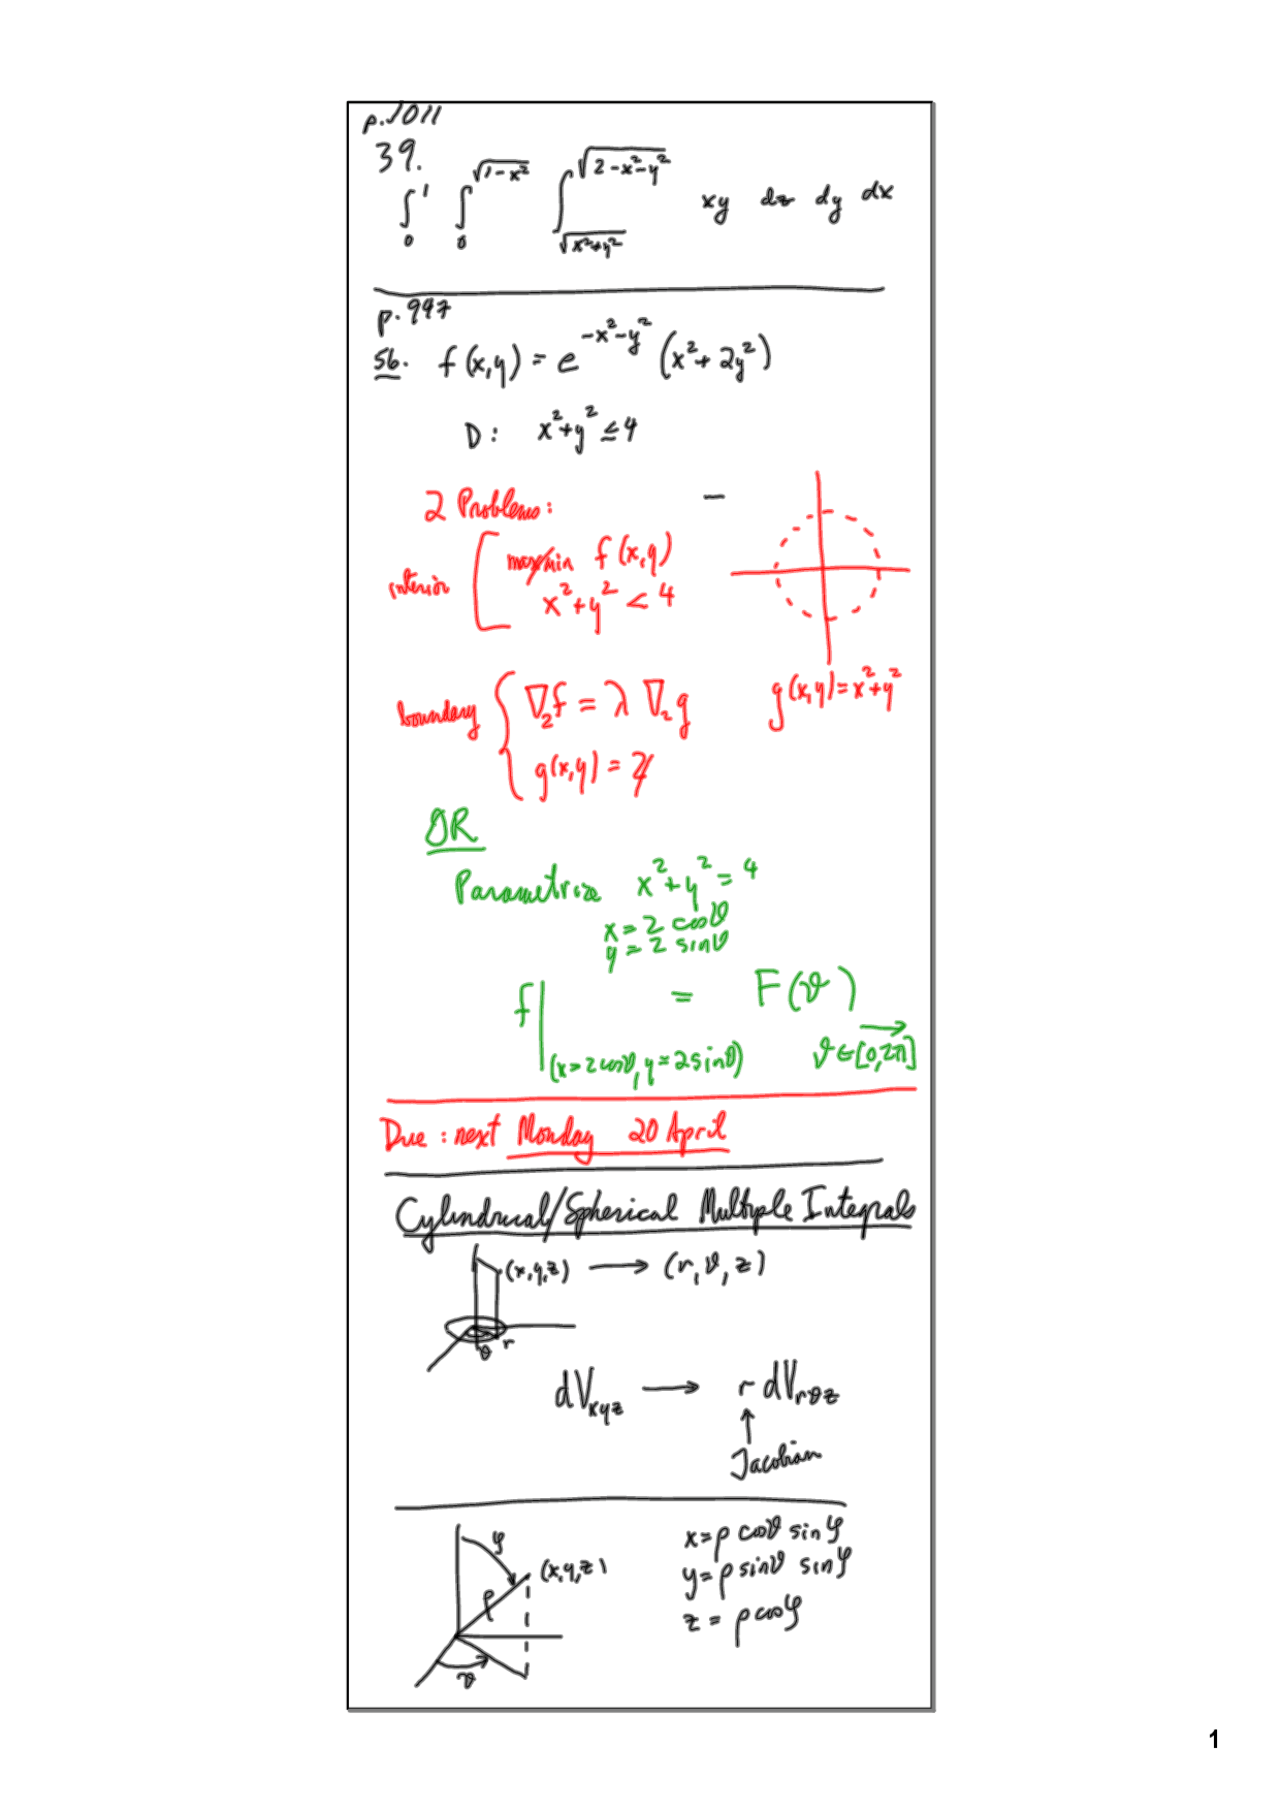 p.1011
39.
∫₀¹ ∫₀^√(1-x²) ∫_√(x²+y²)^√(2-x²-y²) xy dz dy dx
p.947
56. f(x,y) = e^(-x²-y²) (x²+2y²)
D: x²+y² ≤ 4
2 Problems:
interior max/min f(x,y)
x²+y² < 4
g(x,y)=x²+y²
boundary ∇₂f = λ ∇₂g
g(x,y) = 4
OR
Parametrize x²+y² = 4
x = 2 cosθ
y = 2 sinθ
f|(x=2cosθ, y=2sinθ) = F(θ)
θ∈[0,2π]
Due: next Monday 20 April
Cylindrical/Spherical Multiple Integrals
(x,y,z) → (r,θ,z)
θ r
dVxyz → r dVrθz
↑
Jacobian
φ
(x,y,z)
ρ
θ
x=ρ cosθ sinφ
y=ρ sinθ sinφ
z = ρ cosφ
1